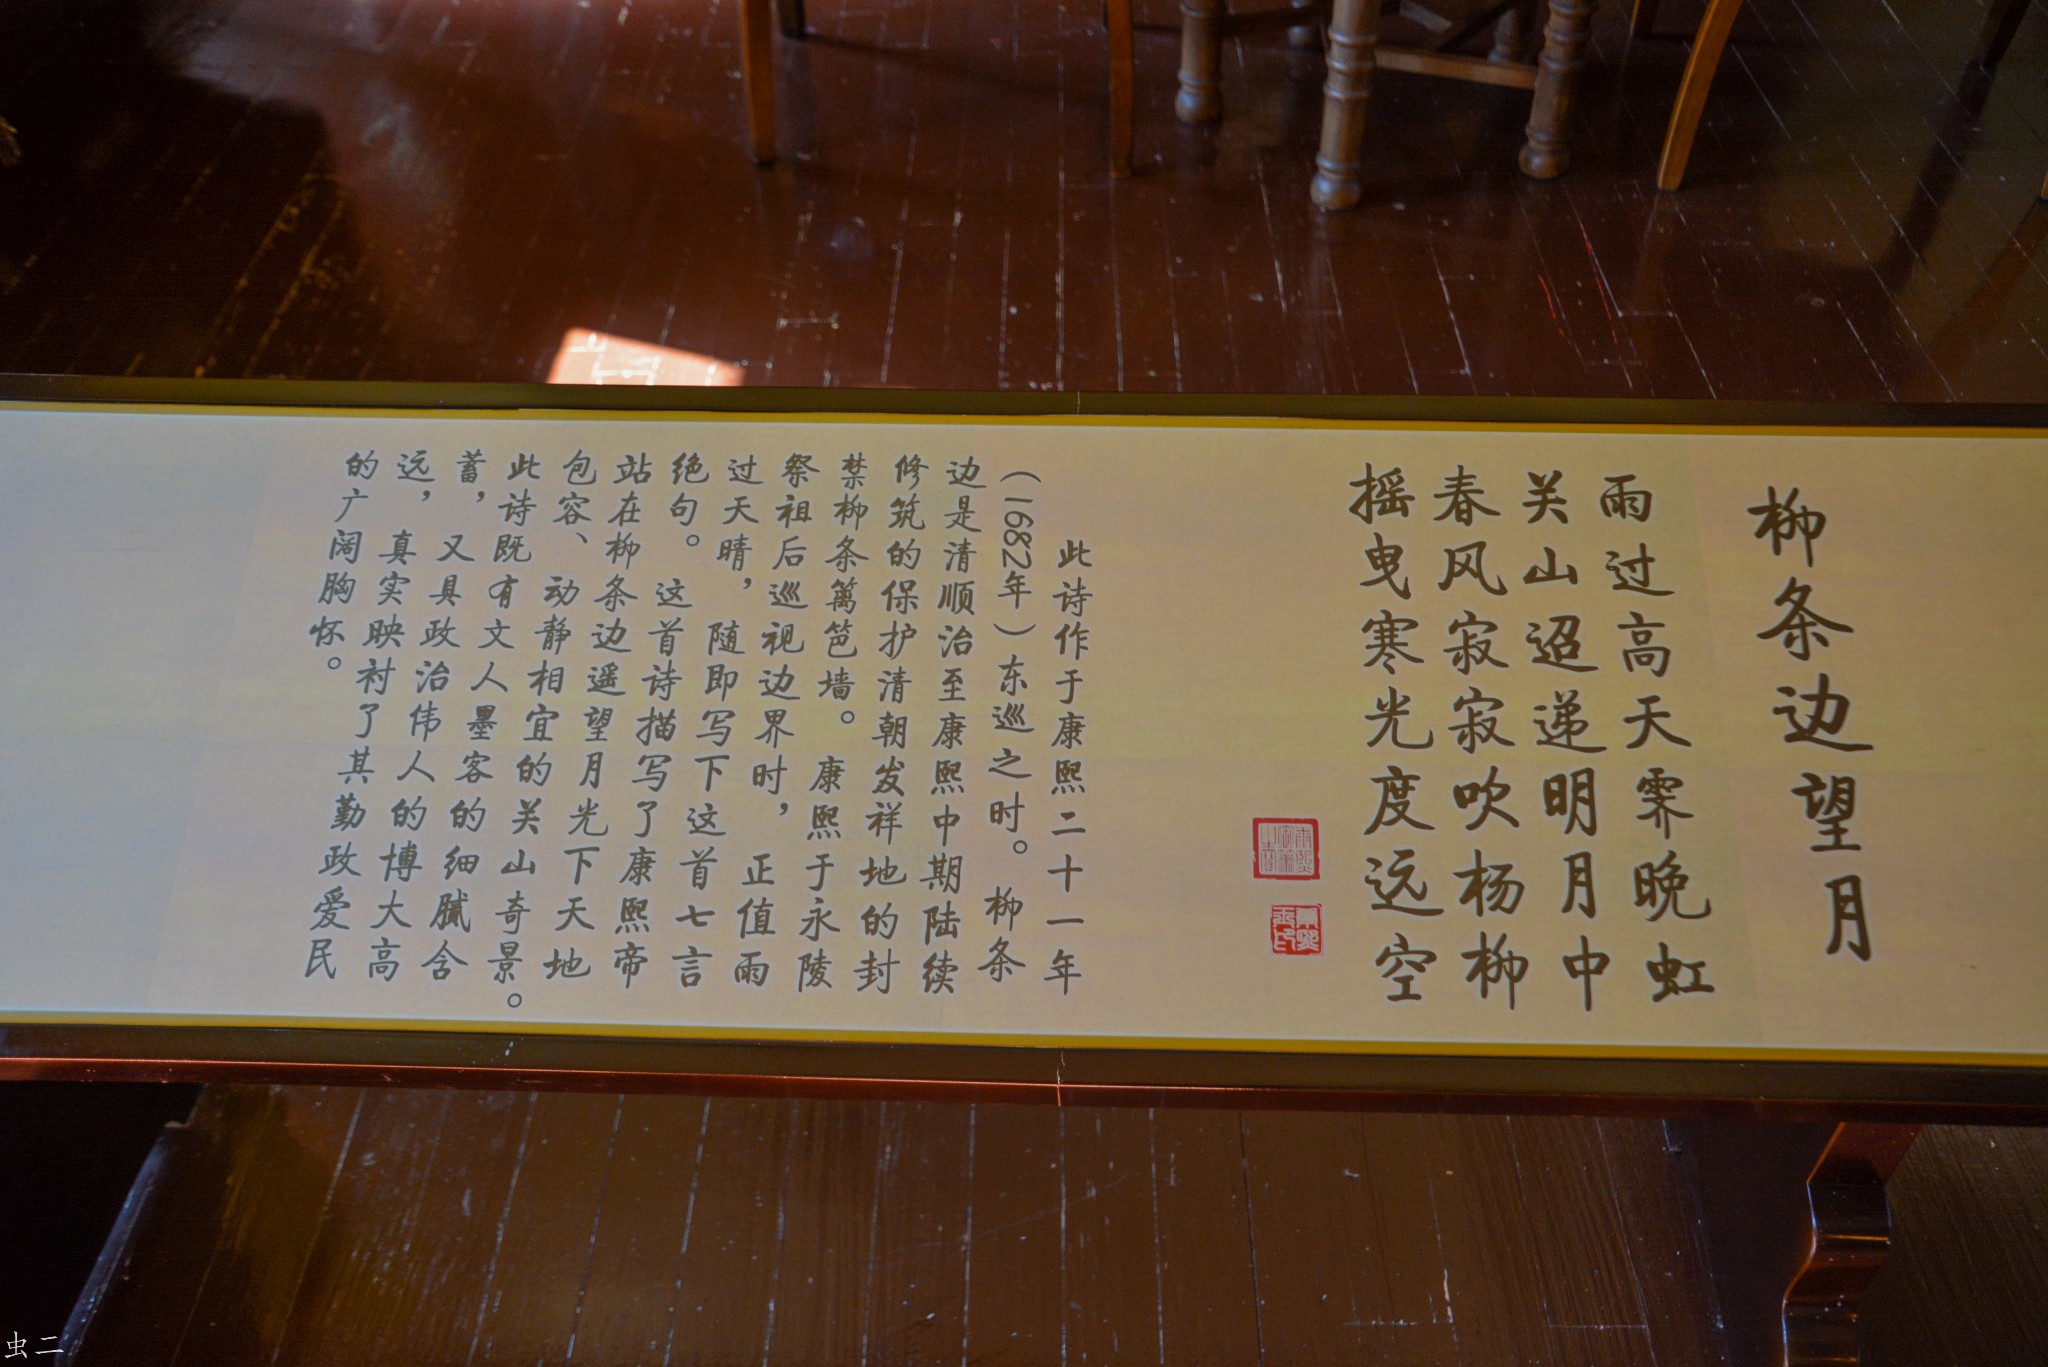 柳条边望月
雨过高天霁晚虹
关山迢递明月中
春风寂寂吹杨柳
摇曳寒光度远空
此诗作于康熙二十一年
（1682年）东巡之时。柳条
边是清顺治至康熙中期陆续
修筑的保护清朝发祥地的封
禁柳条篱笆墙。康熙于永陵
祭祖后巡视边界时，正值雨
过天晴，随即写下这首七言
绝句。这首诗描写了康熙帝
站在柳条边遥望月光下天地
包容、动静相宜的关山奇景。
此诗既有文人墨客的细腻含
蓄，又具政治伟人的博大高
远，真实映衬了其勤政爱民
的广阔胸怀。
虫二